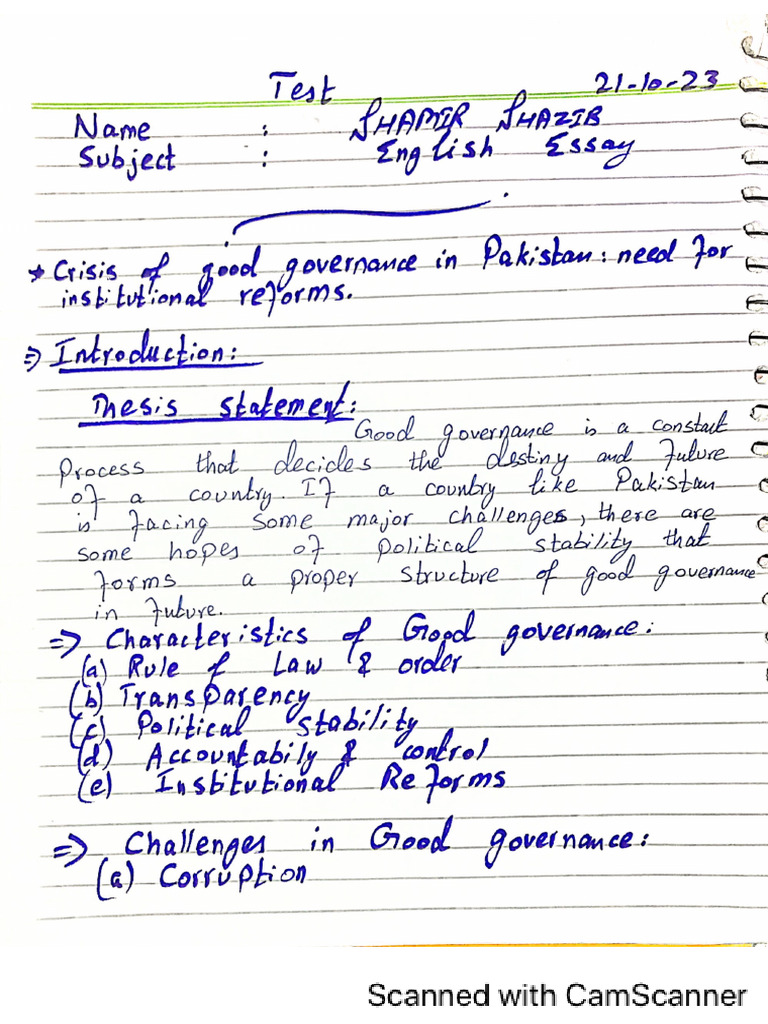 Test 21-10-23
Name : SHAMIR SHAZIB
Subject : English Essay
* Crisis of good governance in Pakistan: need for
institutional reforms.
⇒ Introduction:
Thesis statement:
Good governance is a constact
Process that decides the destiny and future
of a country. If a country like Pakistan
is facing some major challenges, there are
some hopes of political stability that
forms a proper structure of good governance
in future.
⇒ Characteristics of Good governance:
(a) Rule of Law & order
(b) Transparency
(c) Political stability
(d) Accountabily & control
(e) Institutional Reforms
⇒ Challenges in Good governance:
(a) Corruption
Scanned with CamScanner